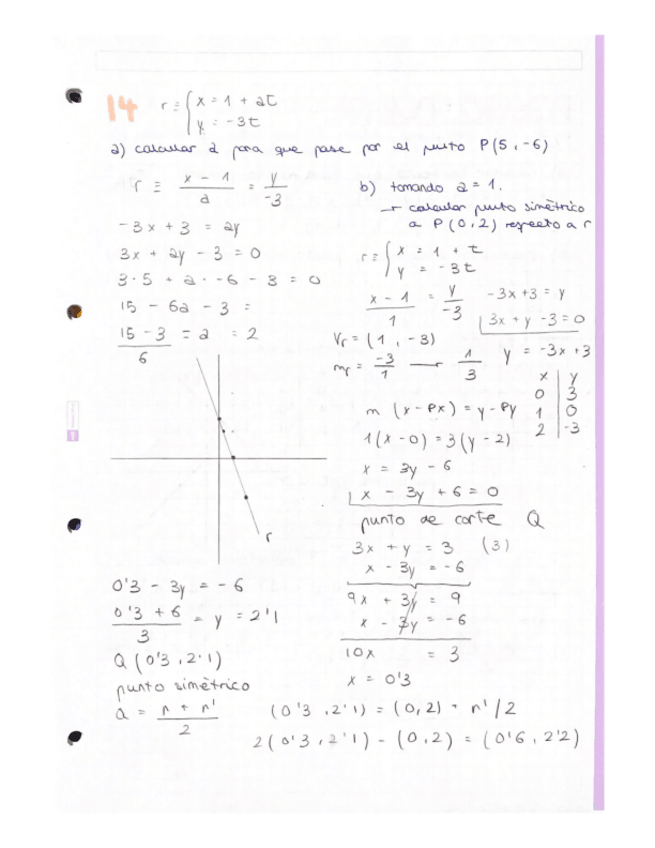 14 r ≡ { x = 1 + at
y = -3t
a) calcular a para que pase por el punto P(5, -6)
r ≡ x - 1 / a = y / -3
-3x + 3 = ay
3x + ay - 3 = 0
3 · 5 + a · -6 - 3 = 0
15 - 6a - 3 =
15 - 3 / 6 = a = 2
b) tomando a = 1.
→ calcular punto simètrico
a P(0,2) respecto a r
r ≡ { x = 1 + t
y = -3t
x - 1 / 1 = y / -3
-3x + 3 = y
3x + y - 3 = 0
Vr = (1, -3)
mr = -3 / 1 → 1 / 3
y = -3x + 3
x | y
0 | 3
1 | 0
2 | -3
m (x - Px) = y - Py
1(x - 0) = 3(y - 2)
x = 3y - 6
x - 3y + 6 = 0
punto de corte Q
3x + y = 3 (3)
x - 3y = -6
9x + 3y = 9
x - 3y = -6
10x = 3
x = 0'3
r
0'3 - 3y = -6
0'3 + 6 / 3 = y = 2'1
Q(0'3, 2'1)
punto simètrico
a = n + n' / 2
(0'3, 2'1) = (0,2) + n' / 2
2(0'3, 2'1) - (0,2) = (0'6, 2'2)